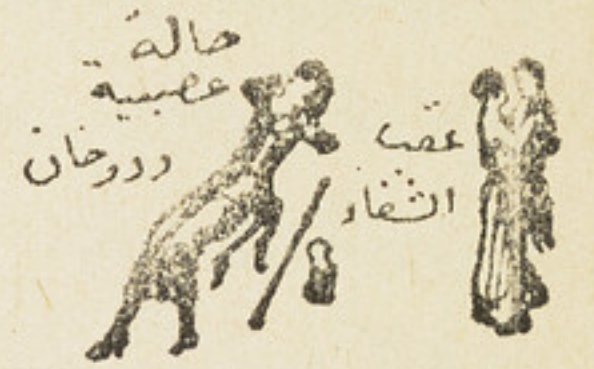 حالة
عصبية
ودوخان
عقب
الشفاء